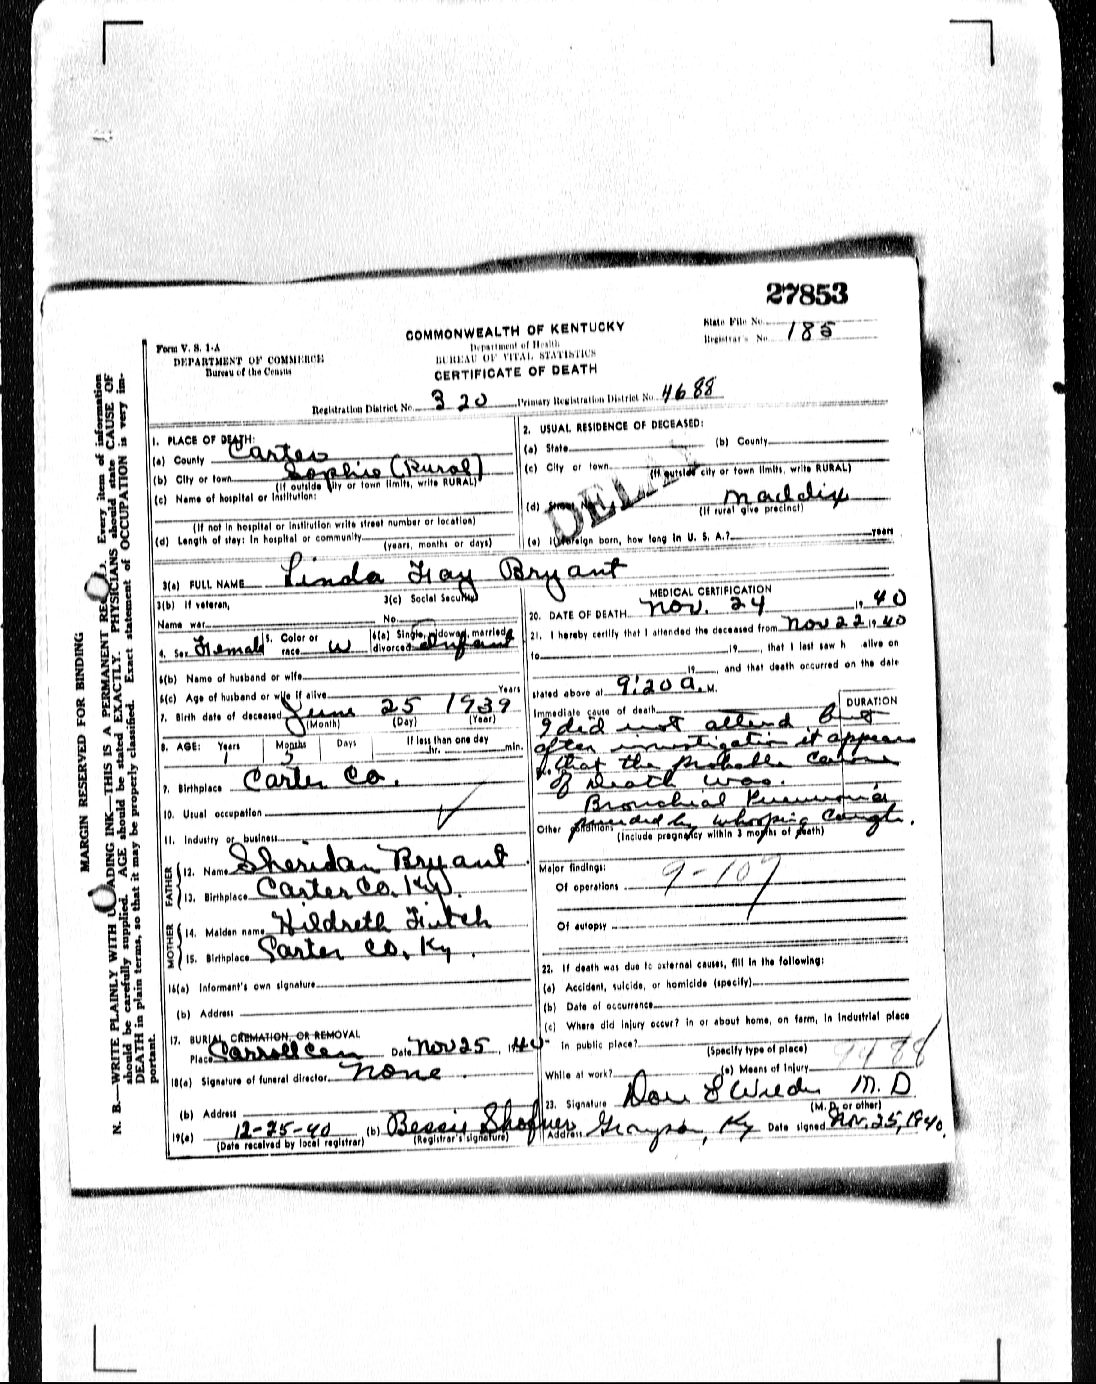 27853
COMMONWEALTH OF KENTUCKY
Department of Health
BUREAU OF VITAL STATISTICS
CERTIFICATE OF DEATH
Form V. S. 1-A
DEPARTMENT OF COMMERCE
Bureau of the Census
State File No.
Registrar's No. 185
Registration District No. 320 Primary Registration District No. 4688
1. PLACE OF DEATH:
(a) County Carter
(b) City or town Sophie (Rural)
(If outside city or town limits, write RURAL)
(c) Name of hospital or institution:
(If not in hospital or institution write street number or location)
(d) Length of stay: In hospital or community
(years, months or days)
2. USUAL RESIDENCE OF DECEASED:
(a) State (b) County
(c) City or town
(If outside city or town limits, write RURAL)
(d) Street Maddix
(If rural give precinct)
(e) If foreign born, how long in U. S. A.? years
3(a) FULL NAME Linda Fay Bryant
3(b) If veteran, 3(c) Social Security
Name war No.
4. Sex Female 5. Color or race W 6(a) Single, widowed, married, divorced Infant
6(b) Name of husband or wife
6(c) Age of husband or wife if alive Years
7. Birth date of deceased June 25 1939
(Month) (Day) (Year)
8. AGE: Years Months Days If less than one day
1 5 hr. min.
9. Birthplace Carter Co.
10. Usual occupation
11. Industry or business
FATHER
12. Name Sheridan Bryant
13. Birthplace Carter Co. Ky.
MOTHER
14. Maiden name Hildreth
15. Birthplace Carter Co. Ky.
16(a) Informant's own signature
(b) Address
17. BURIAL, CREMATION, OR REMOVAL
Place Carroll Cem Date Nov 25, 1940
18(a) Signature of funeral director None.
(b) Address
19(a) 12-25-40 (b) Bessie Shofner
(Date received by local registrar) (Registrar's signature)
MEDICAL CERTIFICATION
20. DATE OF DEATH Nov. 24 19 40
21. I hereby certify that I attended the deceased from Nov 22 19 40
to 19 , that I last saw h alive on
19 , and that death occurred on the date
stated above at 9:20 A. M.
Immediate cause of death DURATION
I did not attend but
after investigation it appears
that the probable cause
of death was.
Bronchial Pneumonia
Other conditions preceded by whooping cough.
(Include pregnancy within 3 months of death)
Major findings:
Of operations 9-107
Of autopsy
22. If death was due to external causes, fill in the following:
(a) Accident, suicide, or homicide (specify)
(b) Date of occurrence
(c) Where did injury occur? in or about home, on farm, in industrial place
in public place?
(Specify type of place) 9488
While at work? (e) Means of Injury
23. Signature M. D
(M. D. or other)
Address Grayson, Ky Date signed Nov. 25, 1940.
MARGIN RESERVED FOR BINDING
N. B.—WRITE PLAINLY WITH UNFADING INK—THIS IS A PERMANENT RECORD. Every item of information
should be carefully supplied. AGE should be stated EXACTLY. PHYSICIANS should state CAUSE OF
DEATH in plain terms, so that it may be properly classified. Exact statement of OCCUPATION is very im-
portant.